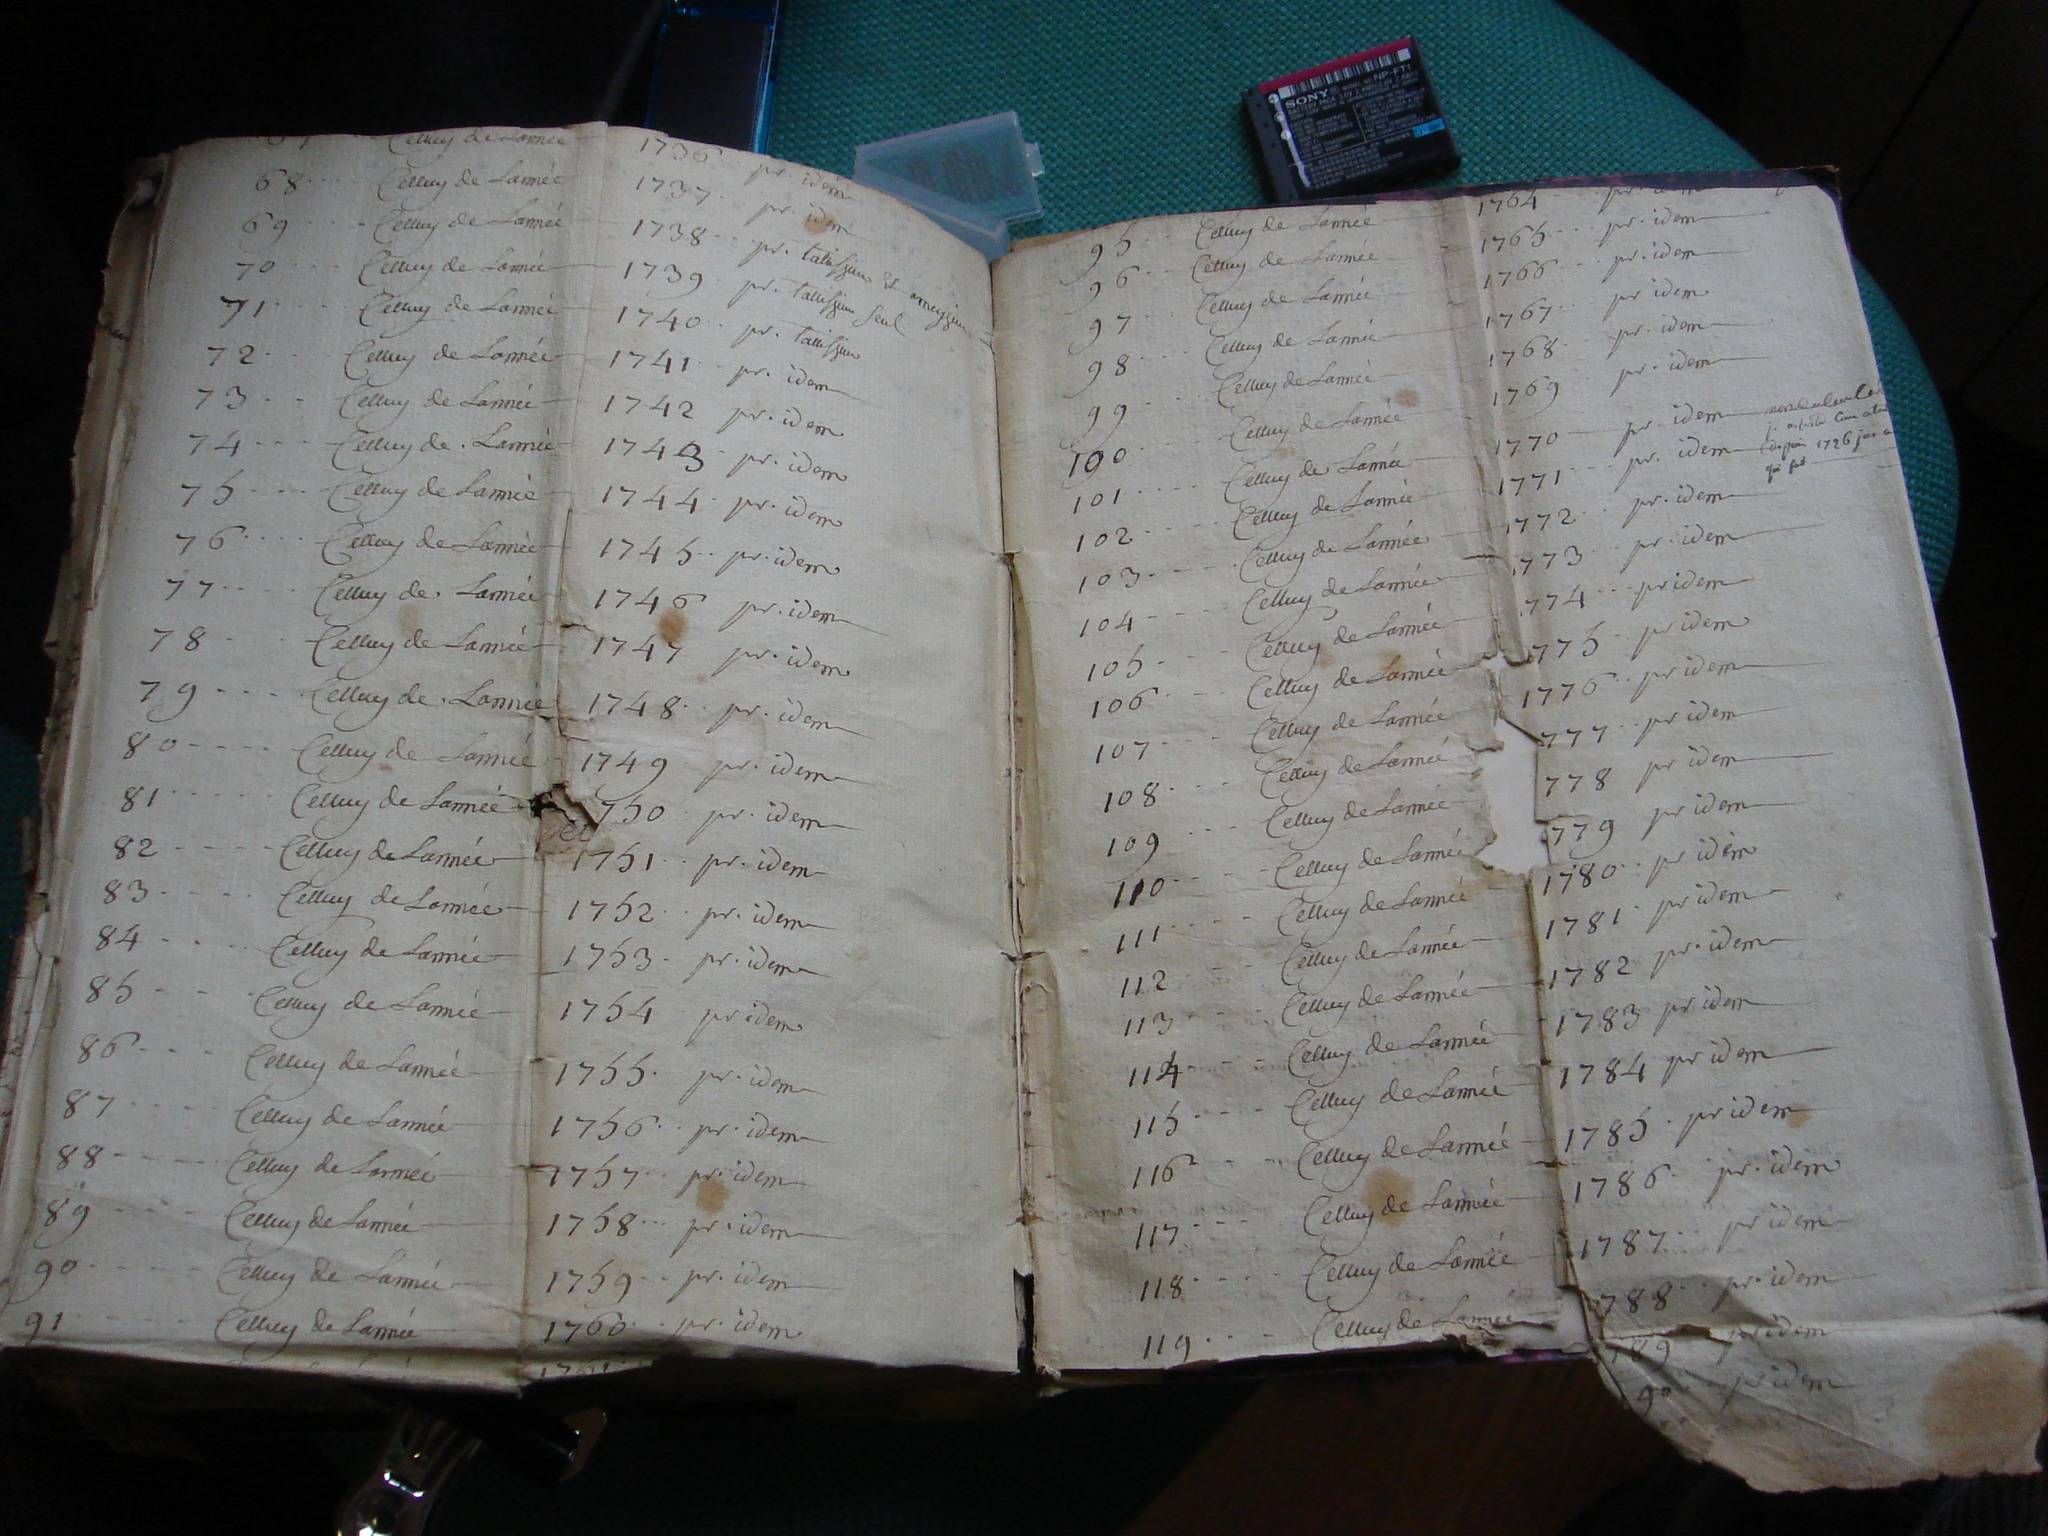 Celluy de Lannée 1736 pr. idem
68 Celluy de Lannée 1737 pr. idem
69 Celluy de Lannée 1738 pr. talissieu & ameyzieu
70 Celluy de Lannée 1739 pr. talissieu seul
71 Celluy de Lannée 1740 pr. talissieu
72 Celluy de Lannée 1741 pr. idem
73 Celluy de Lannée 1742 pr. idem
74 Celluy de Lannée 1743 pr. idem
75 Celluy de Lannée 1744 pr. idem
76 Celluy de Lannée 1745 pr. idem
77 Celluy de Lannée 1746 pr. idem
78 Celluy de Lannée 1747 pr. idem
79 Celluy de Lannée 1748 pr. idem
80 Celluy de Lannée 1749 pr. idem
81 Celluy de Lannée 750 pr. idem
82 Celluy de Lannée 1751 pr. idem
83 Celluy de Lannée 1752 pr. idem
84 Celluy de Lannée 1753 pr. idem
85 Celluy de Lannée 1754 pr idem
86 Celluy de Lannée 1755 pr. idem
87 Celluy de Lannée 1756 pr. idem
88 Celluy de Lannée 1757 pr. idem
89 Celluy de Lannée 1758 pr. idem
90 Celluy de Lannée 1759 pr. idem
91 Celluy de Lannée 1760 pr. idem
1761
95 Celluy de Lannée 1764 pr. idem
96 Celluy de Lannée 1765 pr. idem
97 Celluy de Lannée 1766 pr. idem
98 Celluy de Lannée 1767 pr idem
99 Celluy de Lannée 1768 pr. idem
100 Celluy de Lannée 1769 pr. idem
101 Celluy de Lannée 1770 pr. idem
1726
102 Celluy de Lannée 1771 pr. idem
103 Celluy de Lannée 1772 pr. idem
104 Celluy de Lannée 1773 pr. idem
105 Celluy de Lannée 774 pr idem
106 Celluy de Lannée 775 pr idem
107 Celluy de Lannée 1776 pr idem
108 Celluy de Lannée 777 pr idem
109 Celluy de Lannée 778 pr idem
110 Celluy de Lannée 779 pr idem
111 Celluy de Lannée 1780 pr idem
112 Celluy de Lannée 1781 pr idem
113 Celluy de Lannée 1782 pr. idem
114 Celluy de Lannée 1783 pr idem
115 Celluy de Lannée 1784 pr idem
116 Celluy de Lannée 1785 pr idem
117 Celluy de Lannée 1786 pr. idem
118 Celluy de Lannée 1787 pr idem
119 Celluy de Lannée 788 pr. idem
789 pr idem
90 pr idem
SONY
NP-FT1